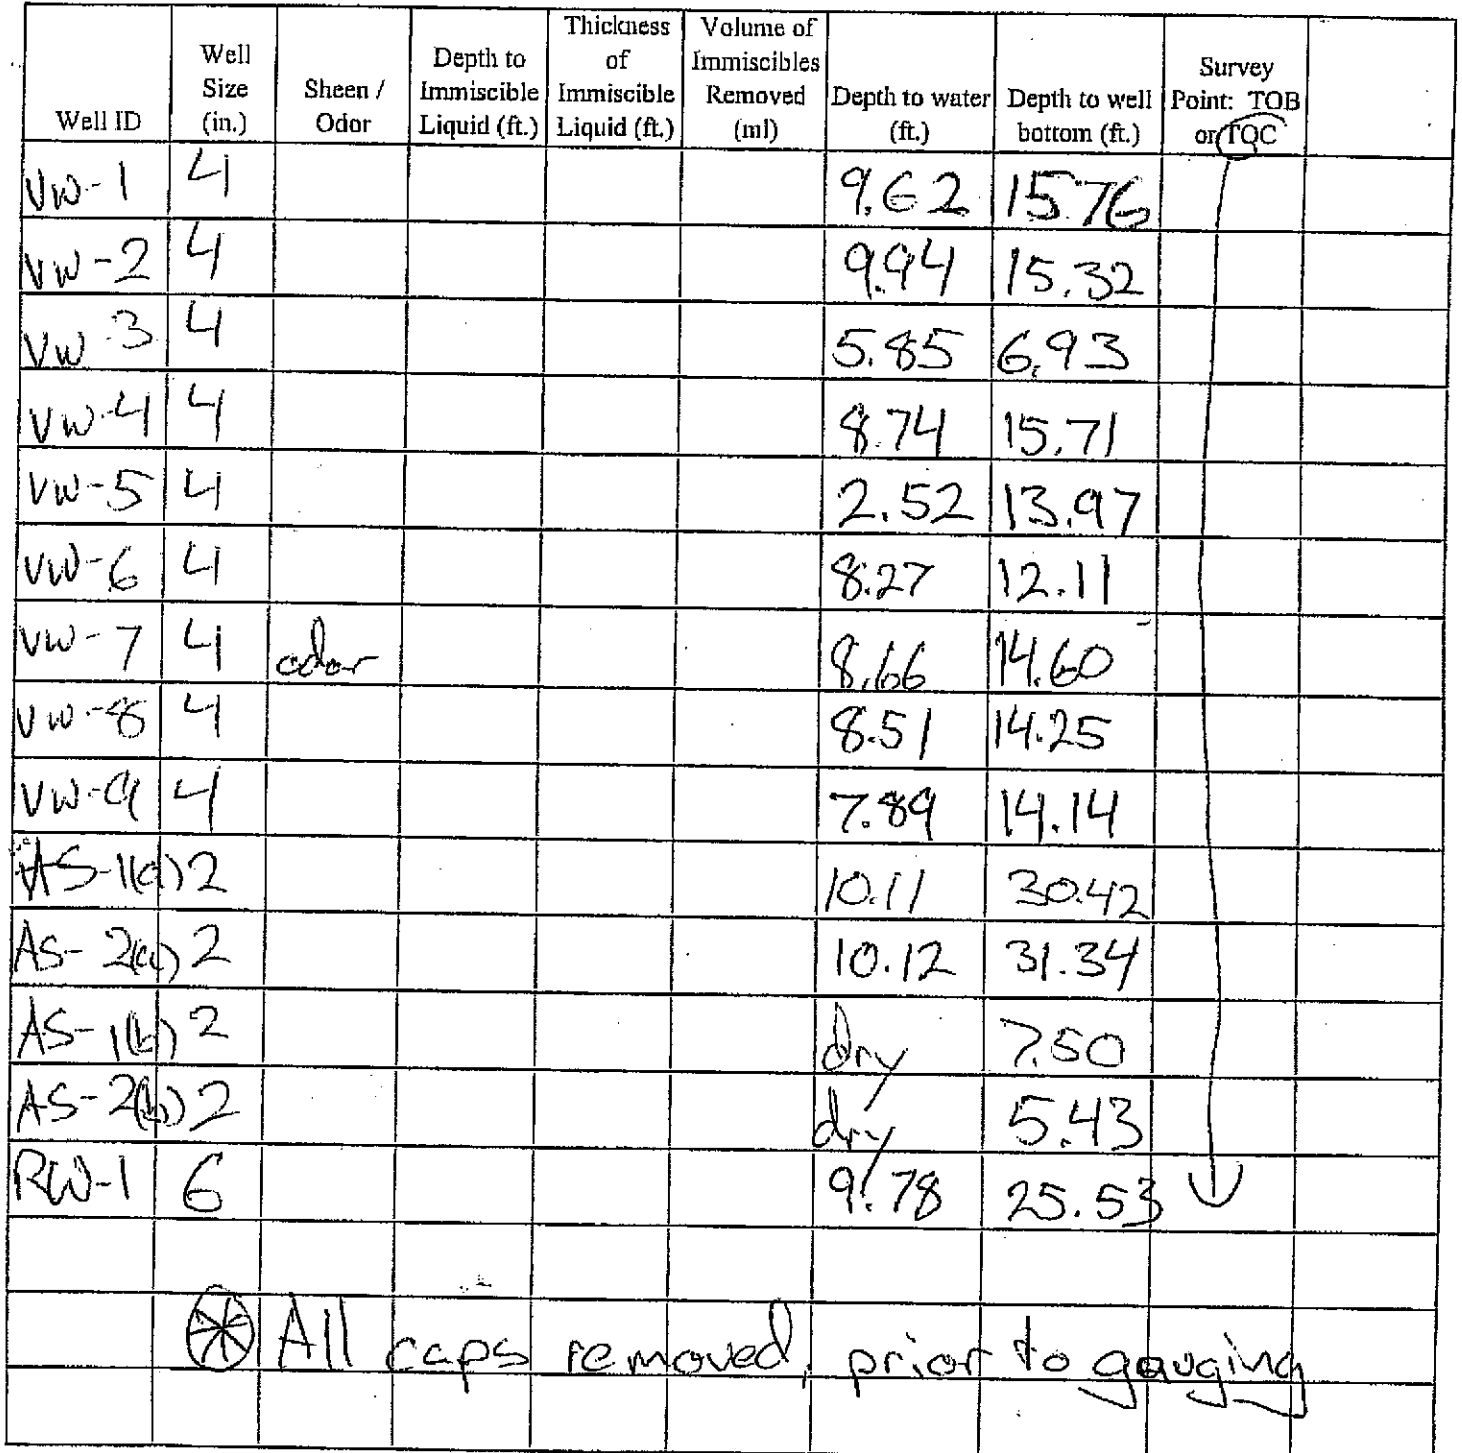 Well ID | Well Size (in.) | Sheen / Odor | Depth to Immiscible Liquid (ft.) | Thickness of Immiscible Liquid (ft.) | Volume of Immiscibles Removed (ml) | Depth to water (ft.) | Depth to well bottom (ft.) | Survey Point: TOB or TOC
VW-1 4 9.62 15.76
VW-2 4 9.94 15.32
VW-3 4 5.85 6.93
VW-4 4 8.74 15.71
VW-5 4 2.52 13.97
VW-6 4 8.27 12.11
VW-7 4 odor 8.66 14.60
VW-8 4 8.51 14.25
VW-9 4 7.89 14.14
AS-1(a) 2 10.11 30.42
AS-2(a) 2 10.12 31.34
AS-1(b) 2 dry 7.50
AS-2(b) 2 dry 5.43
RW-1 6 9.78 25.53
All caps removed, prior to gauging